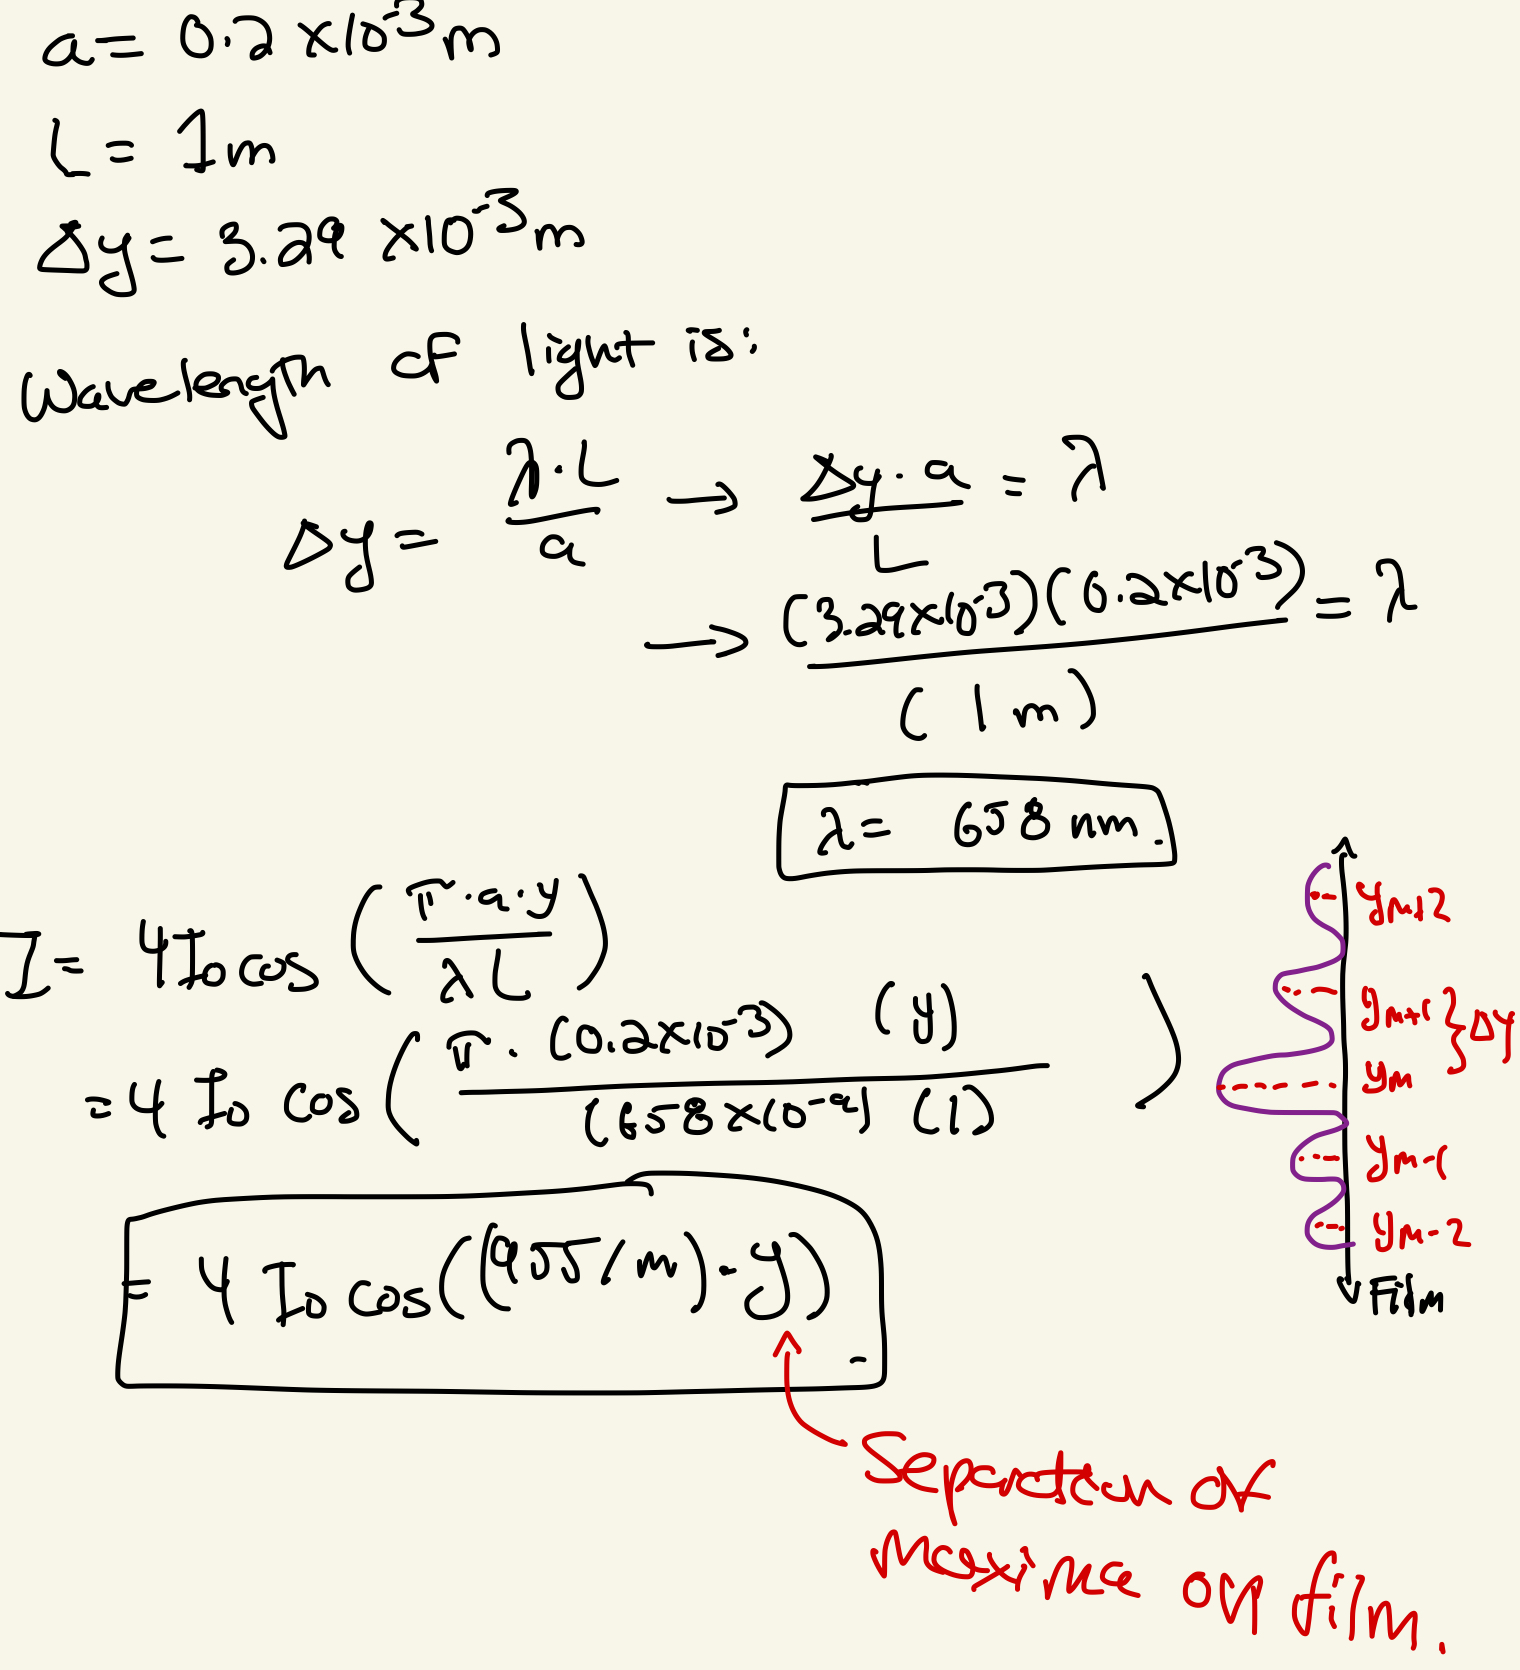 a = 0.2 ×10⁻³ m
L = 1 m
Δy = 3.29 ×10⁻³ m
Wavelength of light is:
Δy = λ·L / a → Δy·a / L = λ
→ (3.29×10⁻³)(0.2×10⁻³) / (1 m) = λ
λ = 658 nm.
I = 4I₀ cos (π·a·y / λ L)
= 4 I₀ cos (π · (0.2×10⁻³) (y) / (658×10⁻⁹) (1))
= 4 I₀ cos((955/m)·y)
Separation of
maxima on film.
yₘ₊₂
yₘ₊₁ } Δy
yₘ
yₘ₋₁
yₘ₋₂
Film